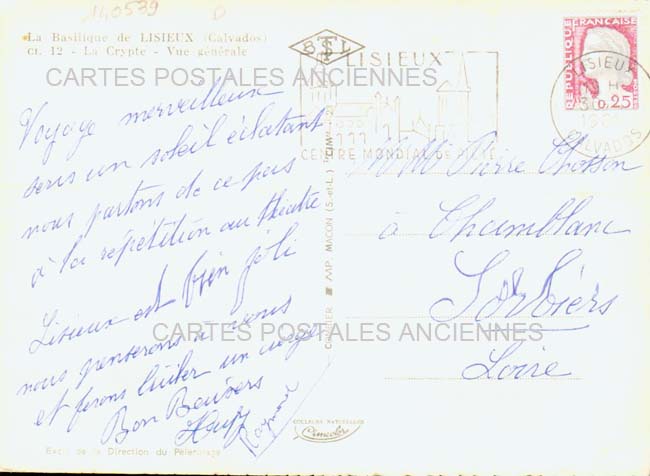 140539
La Basilique de LISIEUX (Calvados)
Ct. 12 - La Crypte - Vue générale
CARTES POSTALES ANCIENNES
Voyage merveilleux
sous un soleil éclatant
nous partons de ce pas
à la répétition au théatre
Lisieux est bien joli
nous penserons à vous
et ferons brûler un cierge
Bon Baisers
Raymond
Excl. de la Direction du Pèlerinage
COMBIER IMP. MACON (S.-et-L.) "CIM"
COULEURS NATURELLES
Cimcolor
BSL
LISIEUX
CENTRE MONDIAL DE
REPUBLIQUE FRANÇAISE
0,25
LISIEUX
CALVADOS
M Me Pierre Chosson
à Chamblanc
Sorbiers
Loire
CARTES POSTALES ANCIENNES